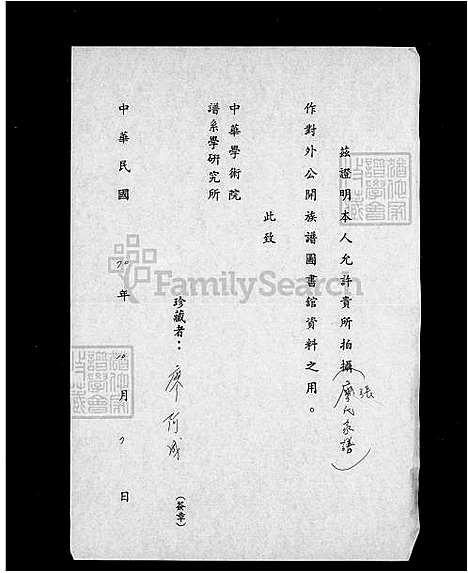 茲證明本人允許貴所拍攝(張廖氏家譜)
作對外公開族譜圖書舘資料之用。
此致
中華學術院
譜系學研究所
珍藏者：廖 (簽章)
中華民國 70 年 10 月 7 日
FamilySearch